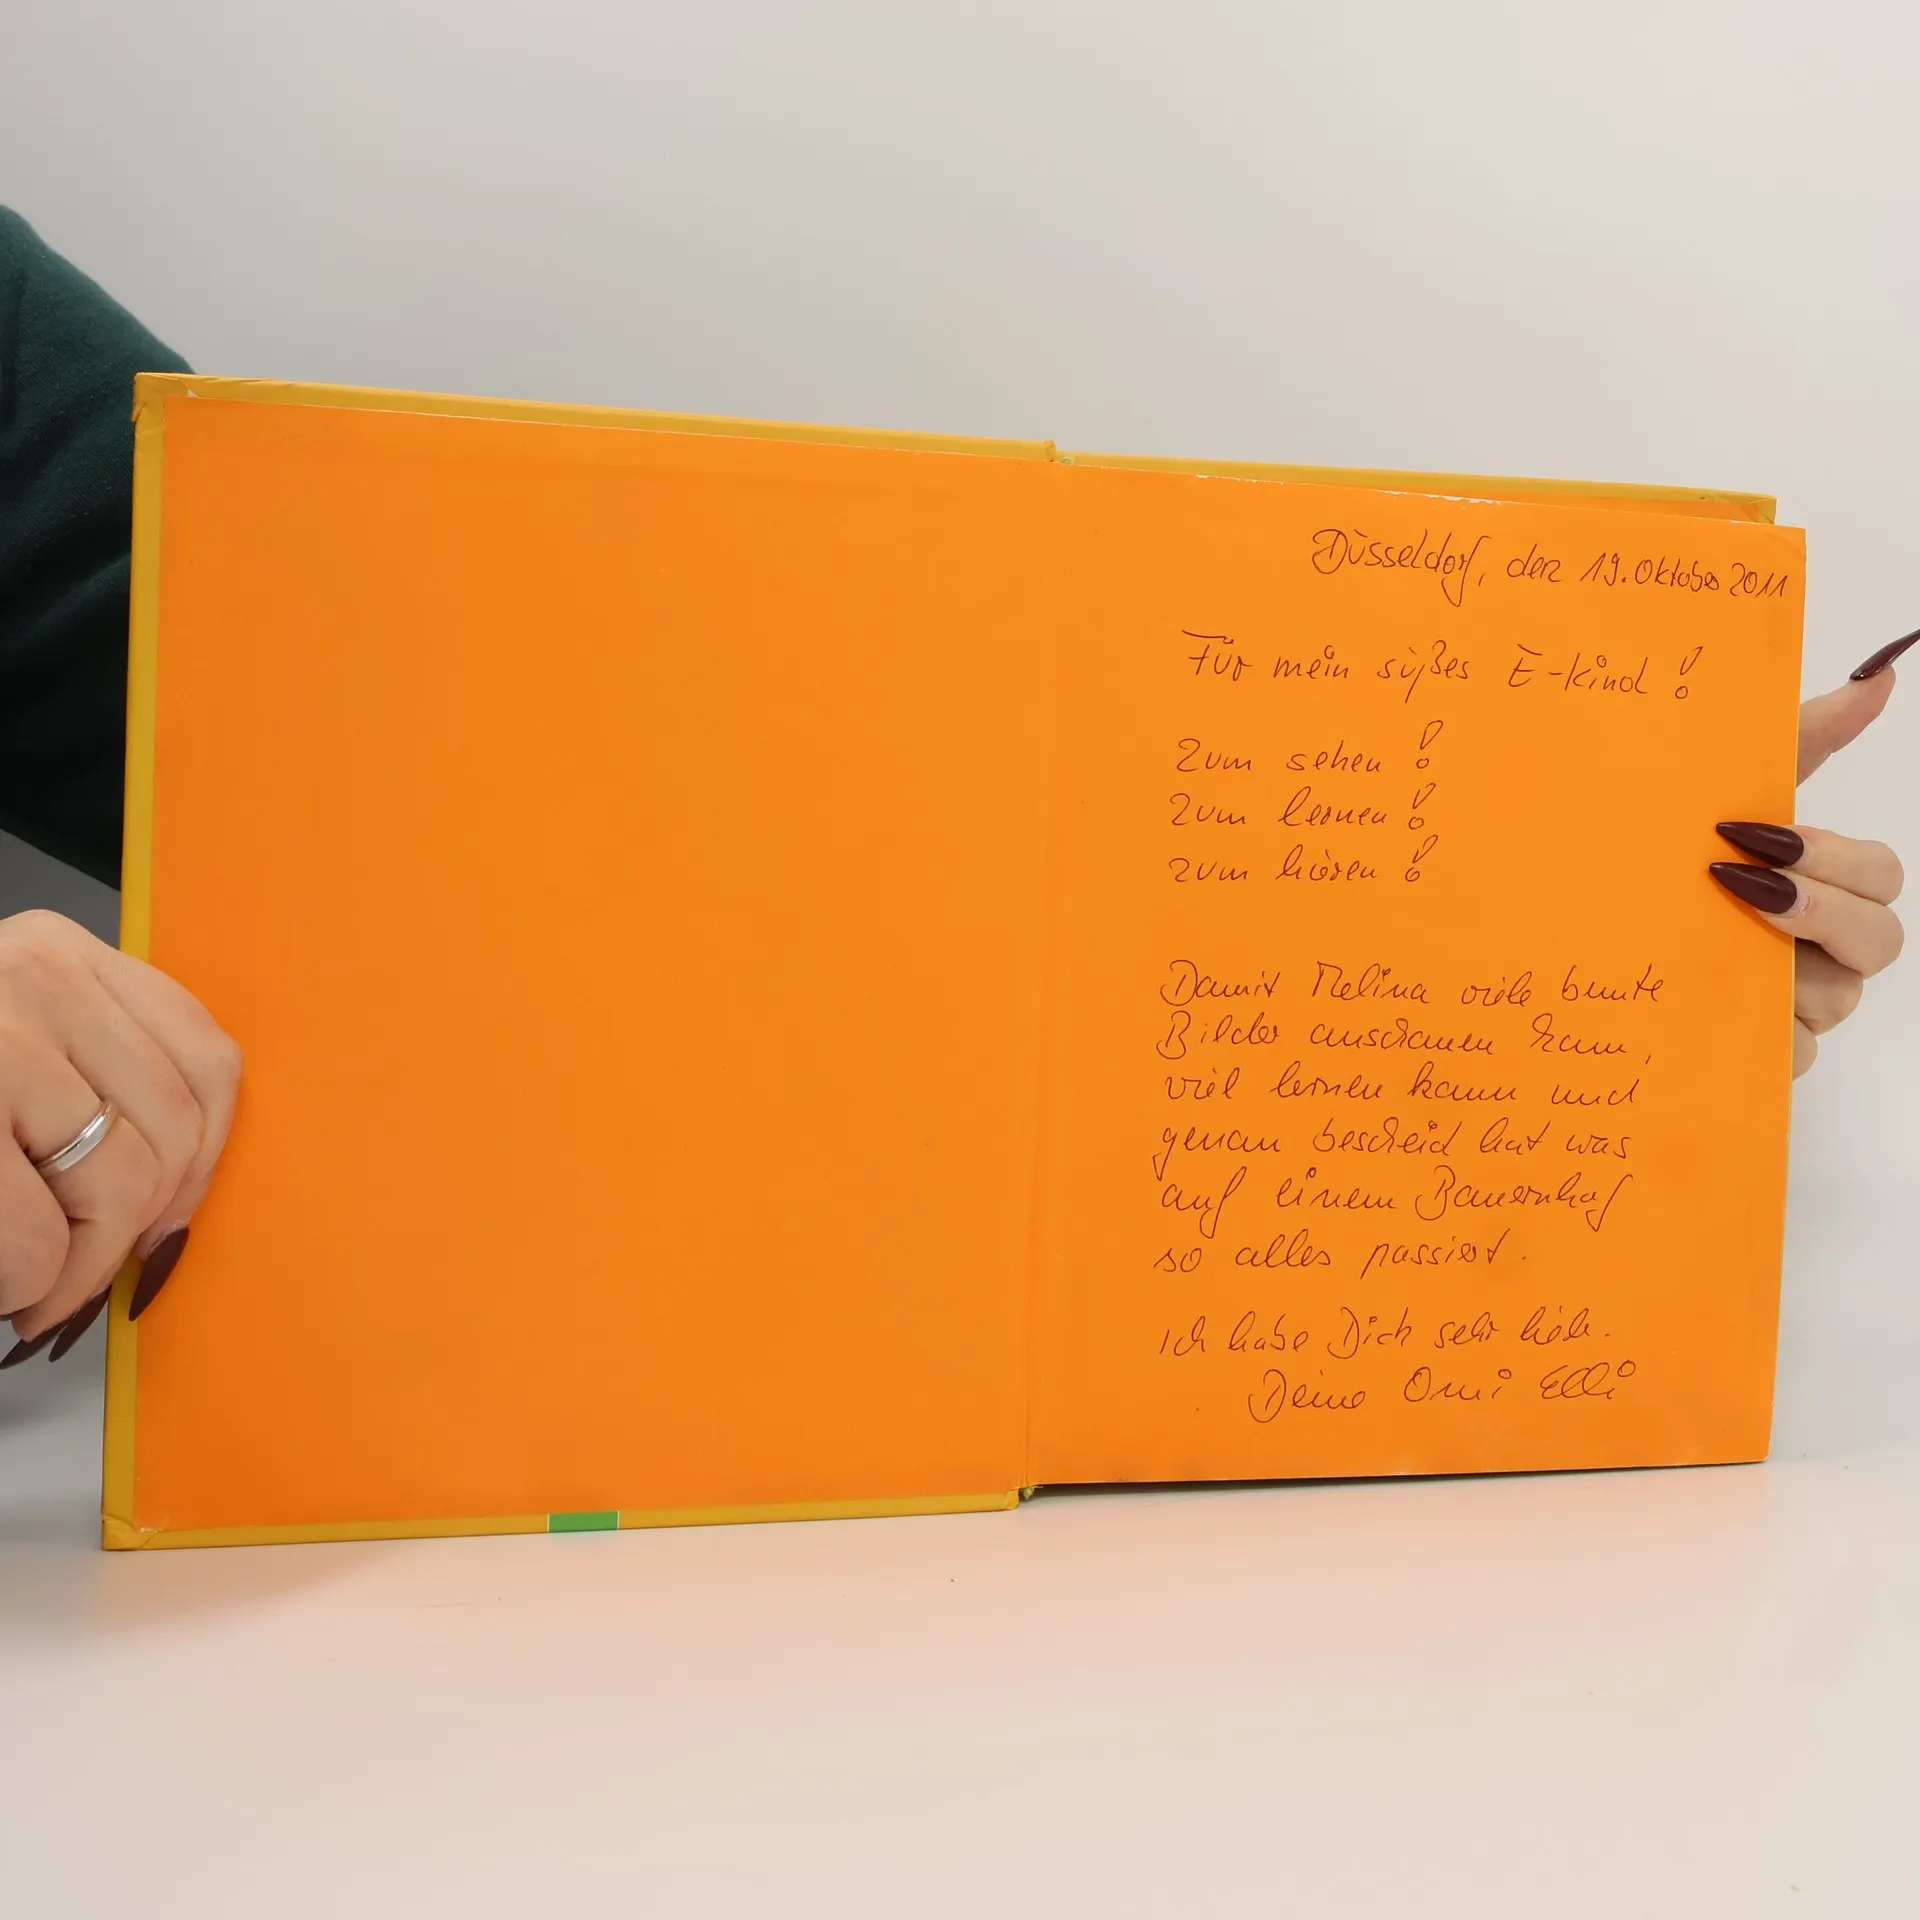 Düsseldorf, den 19. Oktober 2011
Für mein süßes E-kind!
Zum sehen!
Zum lernen!
zum hören!
Damit Melina viele bunte
Bilder anschauen kann,
viel lernen kann und
genau bescheid hat was
auf einem Bauernhof
so alles passiert.
Ich habe Dich sehr lieb.
Deine Omi Elli